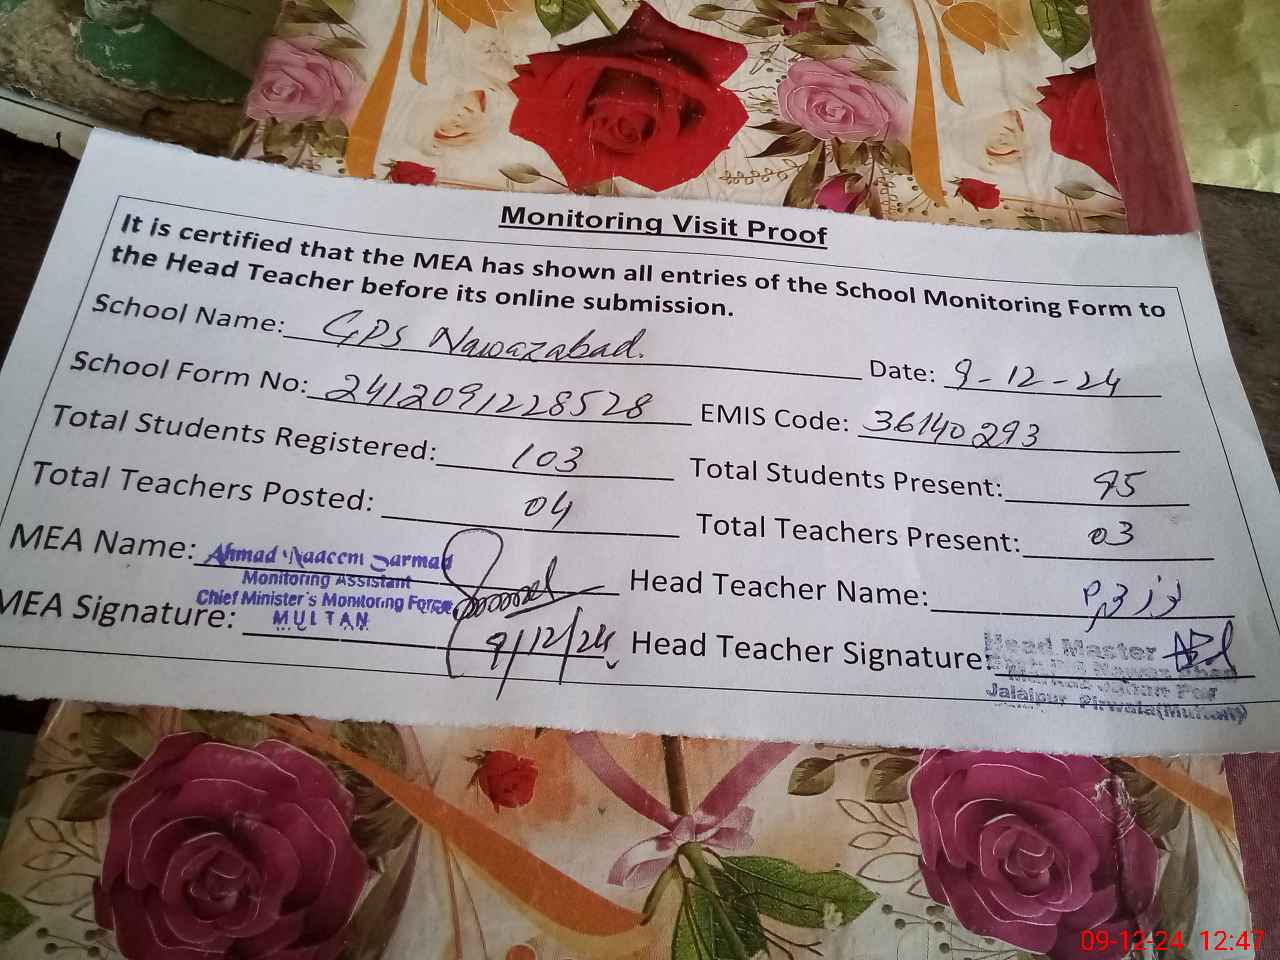 Monitoring Visit Proof
It is certified that the MEA has shown all entries of the School Monitoring Form to
the Head Teacher before its online submission.
School Name: GPS Nawazabad. Date: 9-12-24
School Form No: 2412091228528 EMIS Code: 36140293
Total Students Registered: 103 Total Students Present: 95
Total Teachers Posted: 04 Total Teachers Present: 03
MEA Name: Ahmad Naaeem Sarmad Head Teacher Name:
Monitoring Assistant
Chief Minister's Monitoring Force
MULTAN
MEA Signature: 9/12/24 Head Teacher Signature:
Head Master
Jalalpur Pirwala(Multan)
09-12-24 12:47